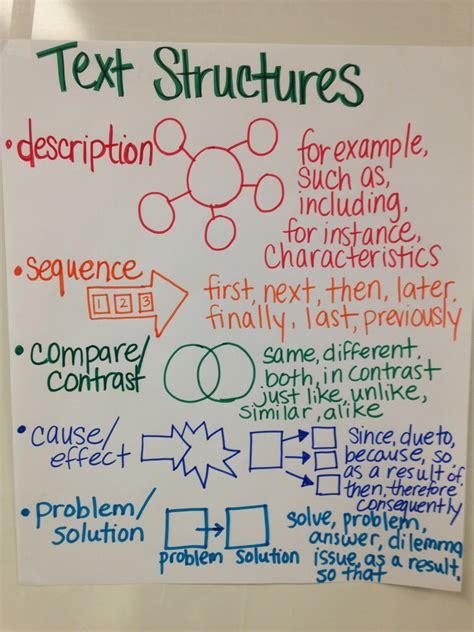 Text Structures
• description
for example,
such as,
including,
for instance,
characteristics
• sequence
1 2 3
first, next, then, later,
finally, last, previously
• compare/
contrast
same, different,
both, in contrast
just like, unlike,
similar, alike
• cause/
effect
Since, due to,
because, so
as a result of,
then, therefore
consequently
• problem/
solution
problem solution
solve, problem,
answer, dilemma
issue, as a result,
so that